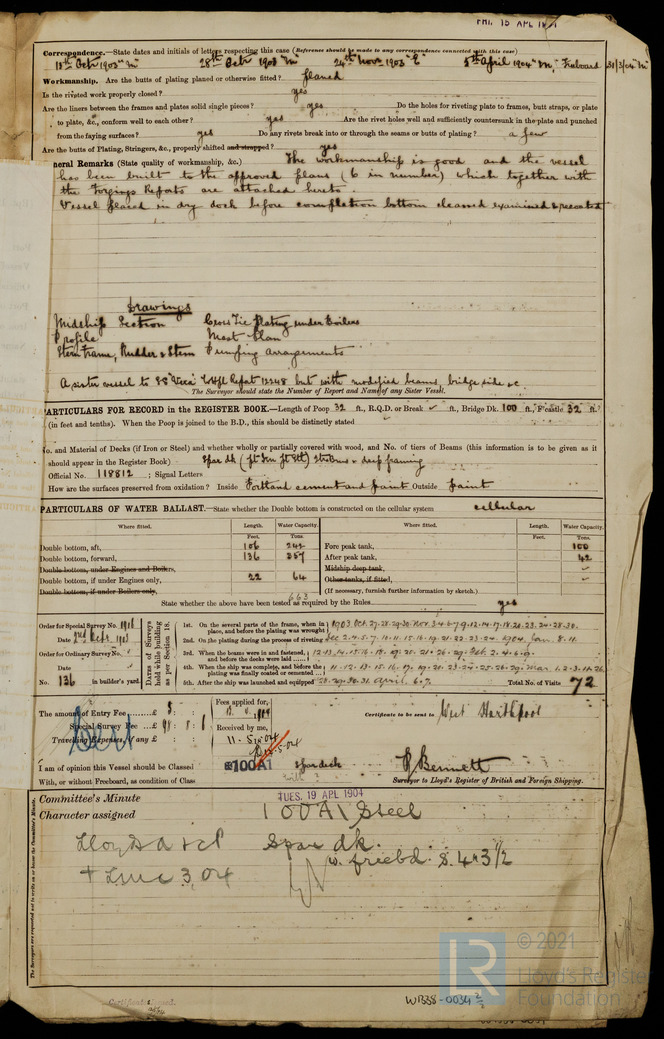 FRI. 15 APL 1904
Correspondence.—State dates and initials of letters respecting this case (Reference should be made to any correspondence connected with this case)
13th Octr 1903 "M" 28th Octr 1903 "M" 24th Novr 1903 "E" 5th April 1904 "M", Freeboard 31/3/04 "M"
Workmanship. Are the butts of plating planed or otherwise fitted? planed
Is the riveted work properly closed? yes
Are the liners between the frames and plates solid single pieces? yes Do the holes for riveting plate to frames, butt straps, or plate
to plate, &c., conform well to each other? yes Are the rivet holes well and sufficiently countersunk in the plate and punched
from the faying surfaces? yes Do any rivets break into or through the seams or butts of plating? a few
Are the butts of Plating, Stringers, &c., properly shifted and strapped? yes
neral Remarks (State quality of workmanship, &c.) The workmanship is good and the vessel
has been built to the approved plans (6 in number) which together with
the Forgings Reports are attached hereto.
Vessel placed in dry dock before completion bottom cleaned examined & recoated
Drawings
Midship Section Cross Tie Plating under Boilers
Profile Mast Plan
Stern frame, Rudder & Stem Pumping arrangements
A sister vessel to SS "Vera" W Hpl Report 12248 but with modified beams, bridge side &c.
The Surveyor should state the Number of Report and Name of any Sister Vessel.
PARTICULARS FOR RECORD in the REGISTER BOOK.—Length of Poop 32 ft., R.Q.D. or Break ft., Bridge Dk. 100 ft., F'castle 32 ft.
(in feet and tenths). When the Poop is joined to the B.D., this should be distinctly stated
No. and Material of Decks (if Iron or Steel) and whether wholly or partially covered with wood, and No. of tiers of Beams (this information is to be given as it
should appear in the Register Book) Spar dk & deep framing
Official No. 118812 ; Signal Letters
How are the surfaces preserved from oxidation? Inside Portland cement and paint Outside paint
PARTICULARS OF WATER BALLAST.—State whether the Double bottom is constructed on the cellular system cellular
Where fitted. Length. Water Capacity. Where fitted. Length. Water Capacity.
Feet. Tons. Feet. Tons.
Double bottom, aft, 106 242 Fore peak tank, 100
Double bottom, forward, 136 357 After peak tank, 42
Double bottom, under Engines and Boilers, Midship deep tank,
Double bottom, if under Engines only, 22 64 Other tanks, if fitted,
Double bottom, if under Boilers only, (If necessary, furnish further information by sketch.)
663
State whether the above have been tested as required by the Rules yes
Order for Special Survey No. 1916
Date 2nd Septr. 1903
Order for Ordinary Survey No.
Date
No. 136 in builder's yard.
DATES of Surveys held while building as per Section 18.
1st. On the several parts of the frame, when in place, and before the plating was wrought 1903 Oct. 27.28.29.30. Nov. 3.4.6.7.9.12.14.17.18.21.23.24.28.30.
2nd. On the plating during the process of riveting Dec 2.4.5.7.10.11.15.16.19.21.22.23.24. 1904 Jan. 8.11.
3rd. When the beams were in and fastened, and before the decks were laid 12.13.14.15.16.18.19.20.21.26.29. Feb. 2.4.6.9.
4th. When the ship was complete, and before the plating was finally coated or cemented 11.12.13.15.16.17.19.20.23.24.25.26.29. Mar. 1.2.3.11.26.
5th. After the ship was launched and equipped 28.29.30.31. April. 6.7. Total No. of Visits 72
The amount of Entry Fee £ 5 : :
Special Survey Fee £ 98 : 8 : 6
Travelling Expenses, if any £ : :
Cert
Fees applied for,
1904
Received by me,
11.5.04
Certificate to be sent to West Hartlepool
I am of opinion this Vessel should be Classed 100A1 spar deck
With, or without Freeboard, as condition of Class with
Bennett
Surveyor to Lloyd's Register of British and Foreign Shipping.
Committee's Minute TUES. 19 APL 1904
Character assigned 100A1 Steel
Lloyd's A & CP Spar dk.
+ LMC 3,04 w. freebd.
The Surveyors are requested not to write on or below the Committee's Minute.
© 2021
Lloyd's Register
Foundation
LR
W1338-0034 2/2